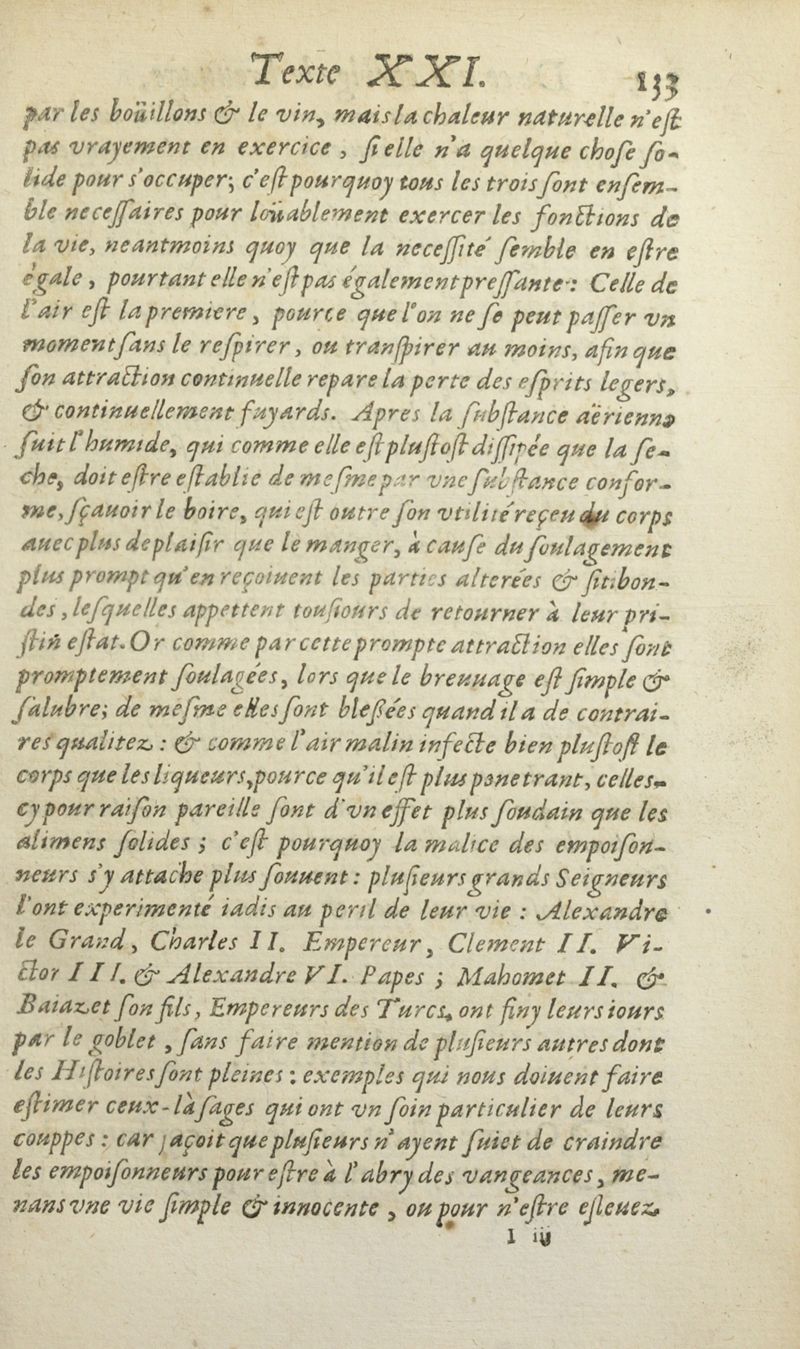 Texte XXI. 133
par les boüillons & le vin, mais la chaleur naturelle n'eſt
pas vrayement en exercice, ſi elle n'a quelque choſe ſo-
lide pour s'occuper; c'eſt pourquoy tous les trois ſont enſem-
ble neceſſaires pour loüablement exercer les fonctions de
la vie, neantmoins quoy que la neceſſité ſemble en eſtre
égale, pourtant elle n'eſt pas également preſſante: Celle de
l'air eſt la premiere, pource que l'on ne ſe peut paſſer vn
moment ſans le reſpirer, ou tranſpirer au moins, afin que
ſon attraction continuelle repare la perte des eſprits legers,
& continuellement fuyards. Apres la ſubſtance aërienne
ſuit l'humide, qui comme elle eſt pluſtoſt diſſipée que la ſe-
che, doit eſtre eſtablie de meſme par vne ſubſtance confor-
me, ſçauoir le boire, qui eſt outre ſon vtilité reçeu du corps
auec plus de plaiſir que le manger, à cauſe du ſoulagement
plus prompt qu'en reçoiuent les parties alterées & ſitibon-
des, leſquelles appettent touſiours de retourner à leur pri-
ſtin eſtat. Or comme par cette prompte attraction elles ſont
promptement ſoulagées, lors que le breuuage eſt ſimple &
ſalubre; de meſme elles ſont bleßées quand il a de contrai-
res qualitez: & comme l'air malin infecte bien pluſtoſt le
corps que les liqueurs, pource qu'il eſt plus penetrant, celles-
cy pour raiſon pareille ſont d'vn effet plus ſoudain que les
alimens ſolides; c'eſt pourquoy la malice des empoiſon-
neurs s'y attache plus ſouuent: pluſieurs grands Seigneurs
l'ont experimenté iadis au peril de leur vie: Alexandre
le Grand, Charles II. Empereur, Clement II. Vi-
ctor III. & Alexandre VI. Papes; Mahomet II. &
Baiazet ſon fils, Empereurs des Turcs, ont finy leurs iours
par le goblet, ſans faire mention de pluſieurs autres dont
les Hiſtoires ſont pleines: exemples qui nous doiuent faire
eſtimer ceux-là ſages qui ont vn ſoin particulier de leurs
couppes: car jaçoit que pluſieurs n'ayent ſuiet de craindre
les empoiſonneurs pour eſtre à l'abry des vangeances, me-
nans vne vie ſimple & innocente, ou pour n'eſtre eſleuez
I iij